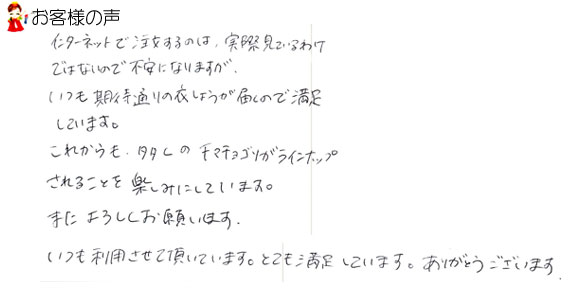 お客様の声
インターネットで注文するのは、実際見ているわけ
ではないので不安になりますが、
いつも期待通りの衣しょうが届くので満足
しています。
これからも、タタくのチマチョゴリがラインナップ
されることを楽しみにしています。
またよろしくお願います.
いつも利用させて頂いています。とても満足しています。ありがとうございます.